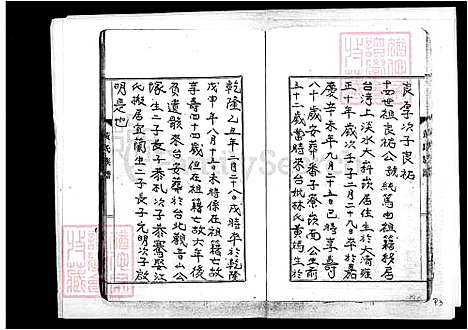 良享次子良祐
十四世祖良祐公號統篤也由祖籍移居
台湾上淡水大科崁居住生於大清雍
正十年歲次壬子二月二十九卒於嘉
慶辛未年九月二十五巳時享壽
八十歲安葬番子寮崁面公生前
五十二歲當時來台批林氏黃媽生於
乾隆乙丑年二月二十八戌時卒於乾隆
戊申年八月十五未時係在祖籍亡故
享壽四十四歲但在祖籍亡故六年後
負遺骸來台安葬於台北觀音山公
塚生二子長子泰札次子泰鴛娶江
氏搬居宜蘭生二子長子元明次子啟
明是也
黃氏族譜
P3